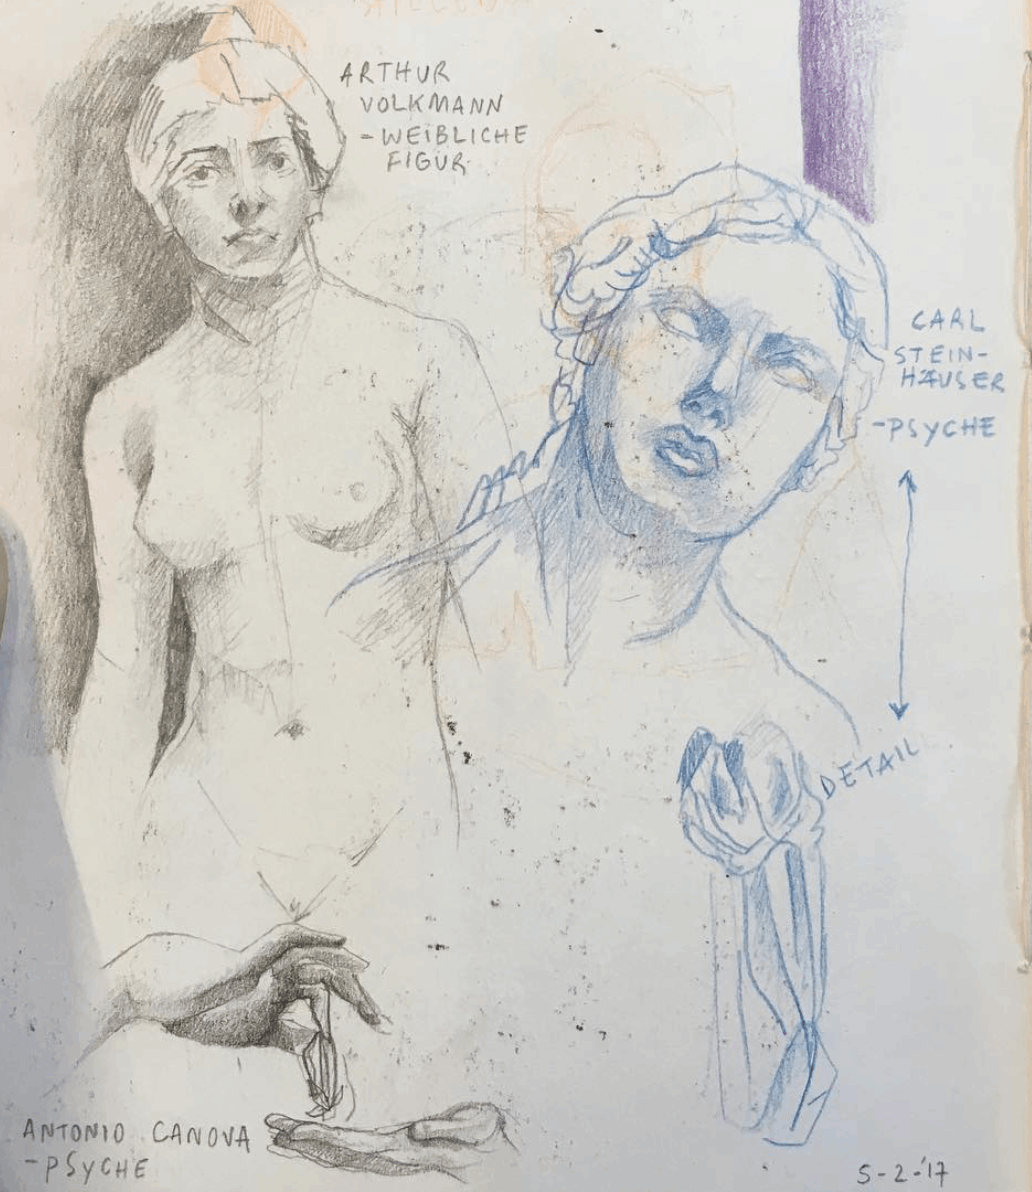 ARTHUR
VOLKMANN
=WEIBLICHE
FIGUR
CARL
STEIN-
HÄUSER
-PSYCHE
DETAIL
ANTONIO CANOVA
-PSYCHE
5-2-'17